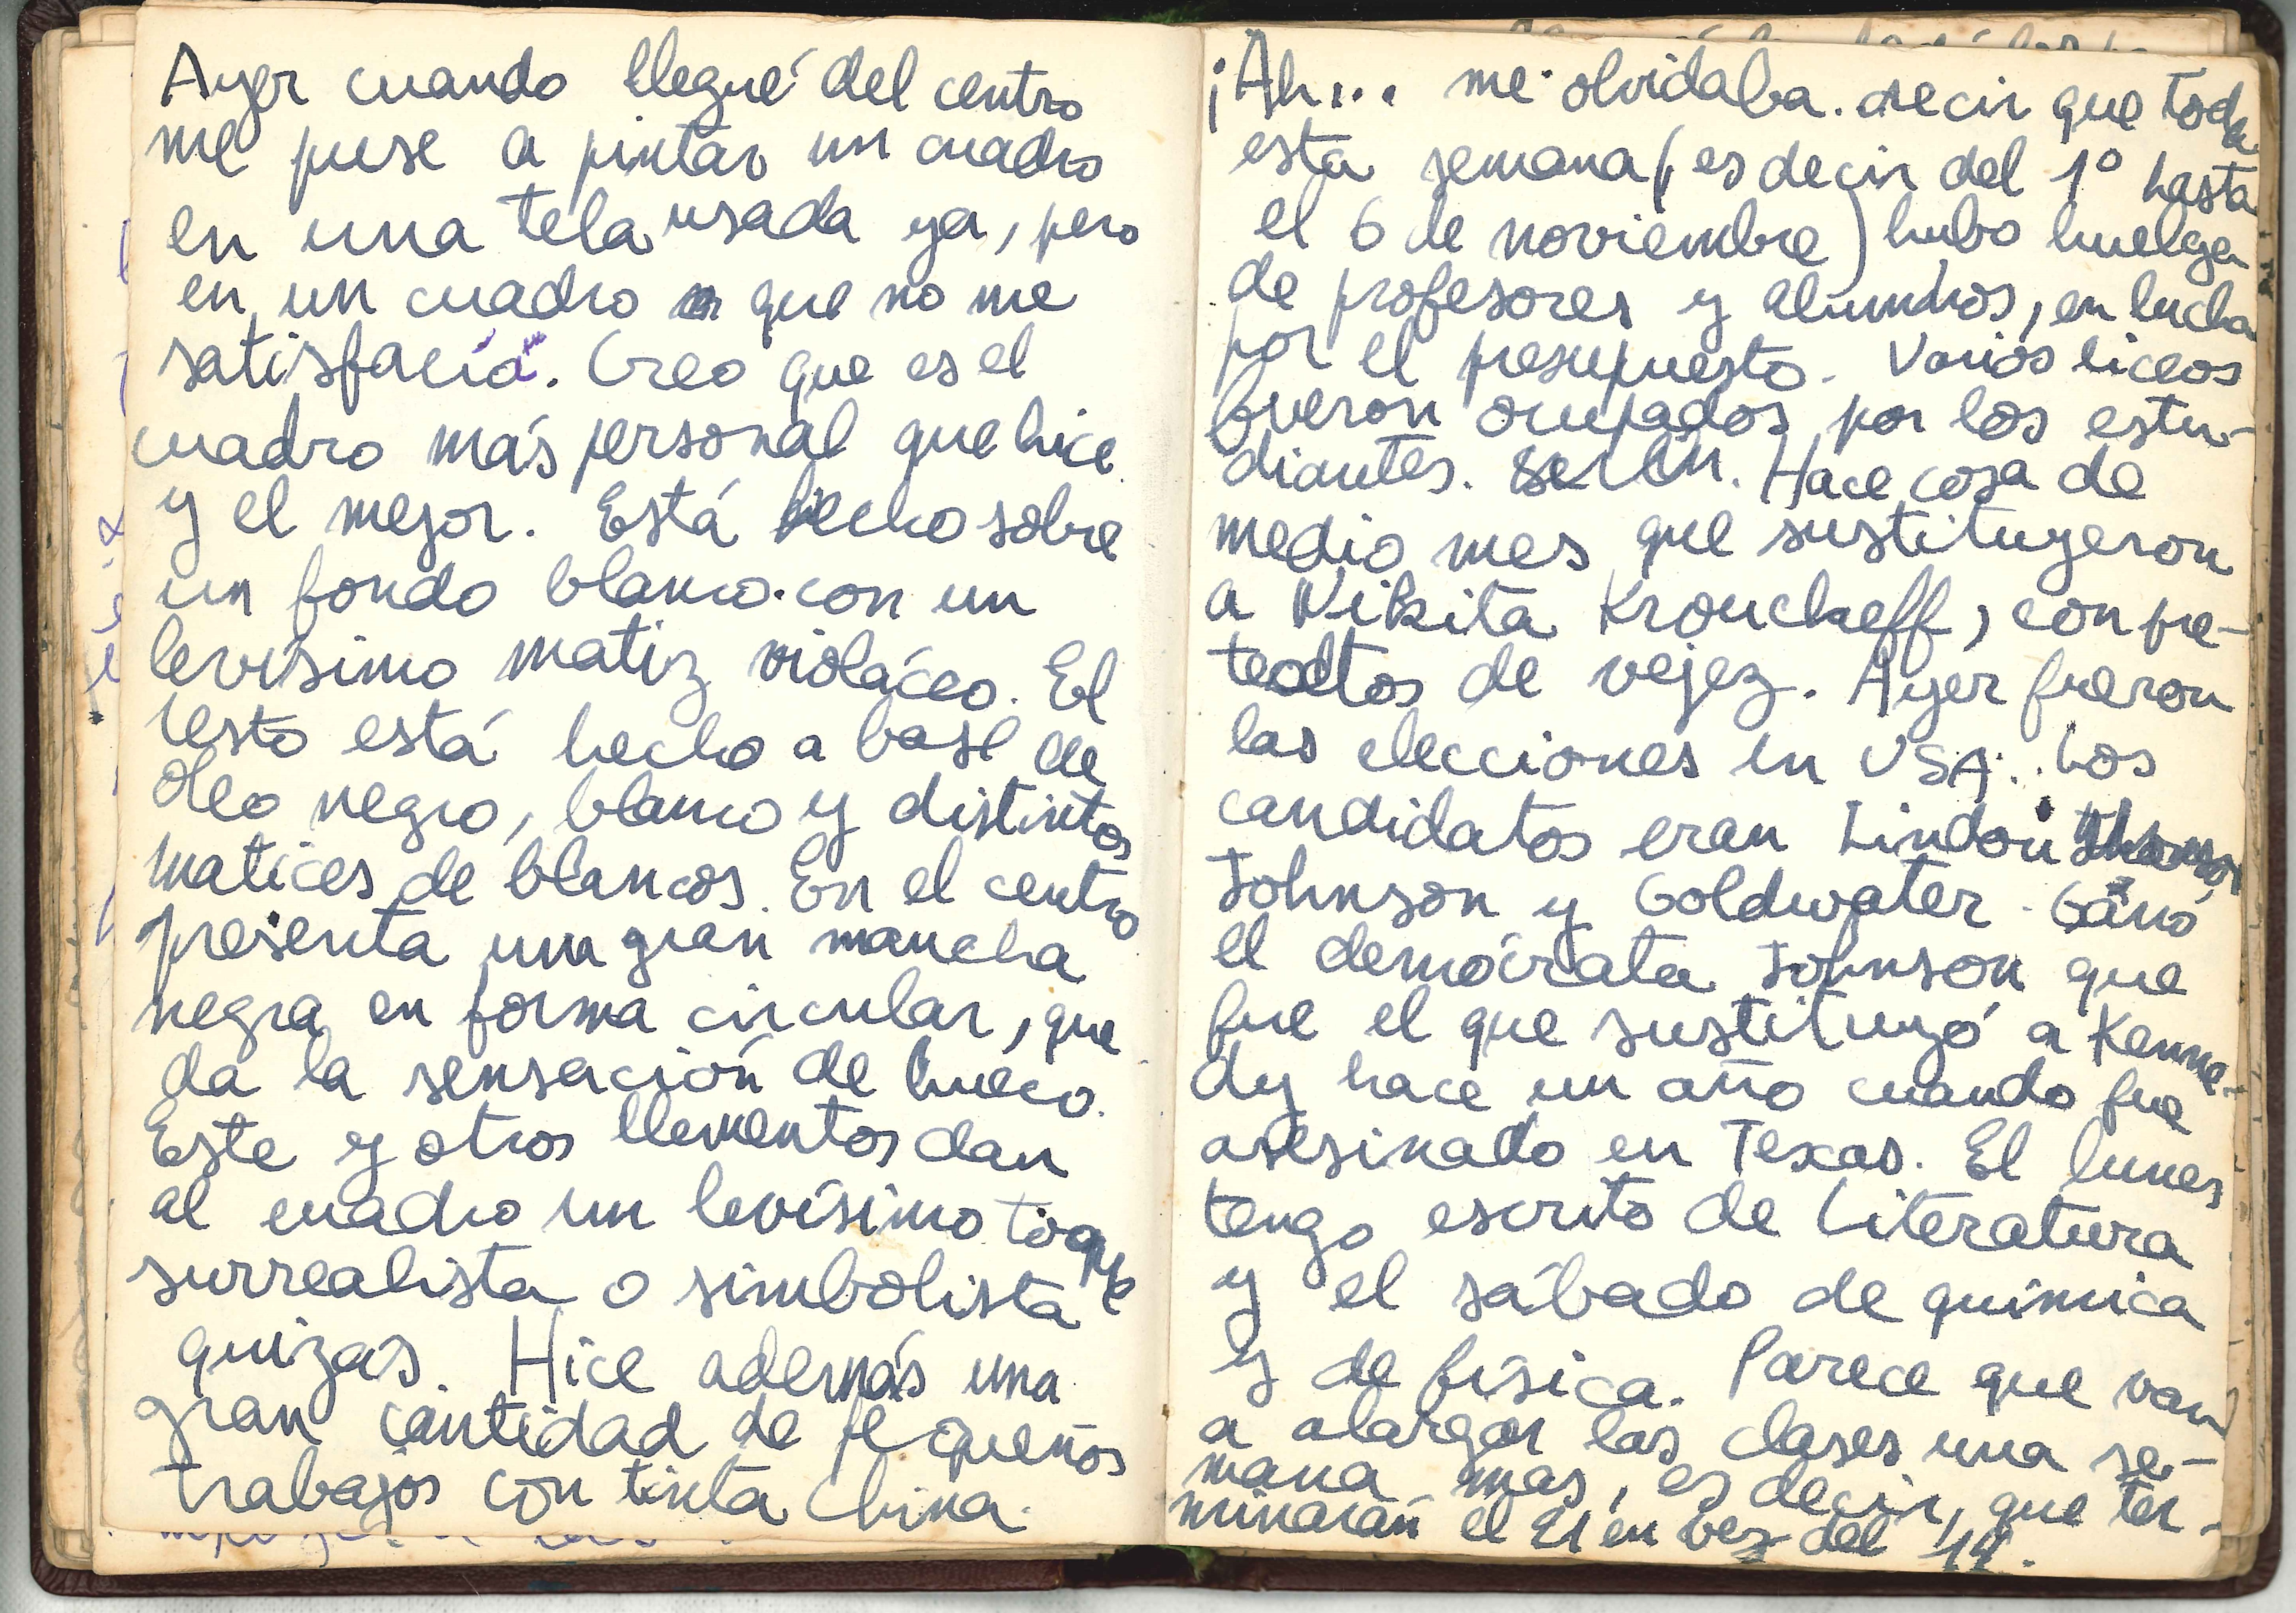 Ayer cuando llegué del centro
me puse a pintar un cuadro
en una tela usada ya, pero
en un cuadro que no me
satisfacía. Creo que es el
cuadro más personal que hice
y el mejor. Está hecho sobre
un fondo blanco con un
levísimo matiz violáceo. El
resto está hecho a base de
óleo negro, blanco y distintos
matices de blancos. En el centro
presenta una gran mancha
negra en forma circular, que
da la sensación de hueco.
Este y otros elementos dan
al cuadro un levísimo toque
surrealista o simbolista
quizás. Hice además una
gran cantidad de pequeños
trabajos con tinta china.
¡Ah... me olvidaba decir que toda
esta semana (es decir del 1º hasta
el 6 de noviembre) hubo huelga
de profesores y alumnos, en lucha
por el presupuesto. Varios liceos
fueron ocupados por los estu-
diantes. Hace cosa de
medio mes que sustituyeron
a Nikita Krouckeff, con pre-
textos de vejez. Ayer fueron
las elecciones en USA. Los
candidatos eran Lindon
Johnson y Goldwater. Ganó
el demócrata Johnson que
fue el que sustituyó a Kenne-
dy hace un año cuando fue
asesinado en Texas. El lunes
tengo escrito de Literatura
y el sábado de química
y de física. Parece que van
a alargar las clases una se-
mana mas, es decir, que ter-
minarán el 21 en vez del 14.